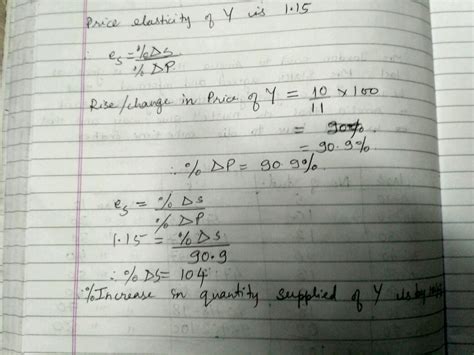 Price elasticity of Y is 1.15
∴ es = %Δs / %ΔP
Rise/change in Price of Y = 10/11 × 100
= 90%.
= 90.9%
∴ % ΔP = 90.9%.
es = % Δs / % ΔP
1.15 = % Δs / 90.9
∴ % Δs = 104
∴ % Increase in quantity supplied of Y is